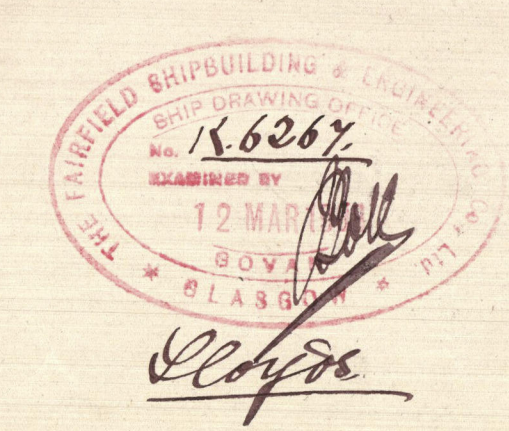 THE FAIRFIELD SHIPBUILDING & ENGINEERING Coy LTD
SHIP DRAWING OFFICE
No. K.6267.
EXAMINED BY
12 MAR
GOVAN
* GLASGOW *
Lloyds.